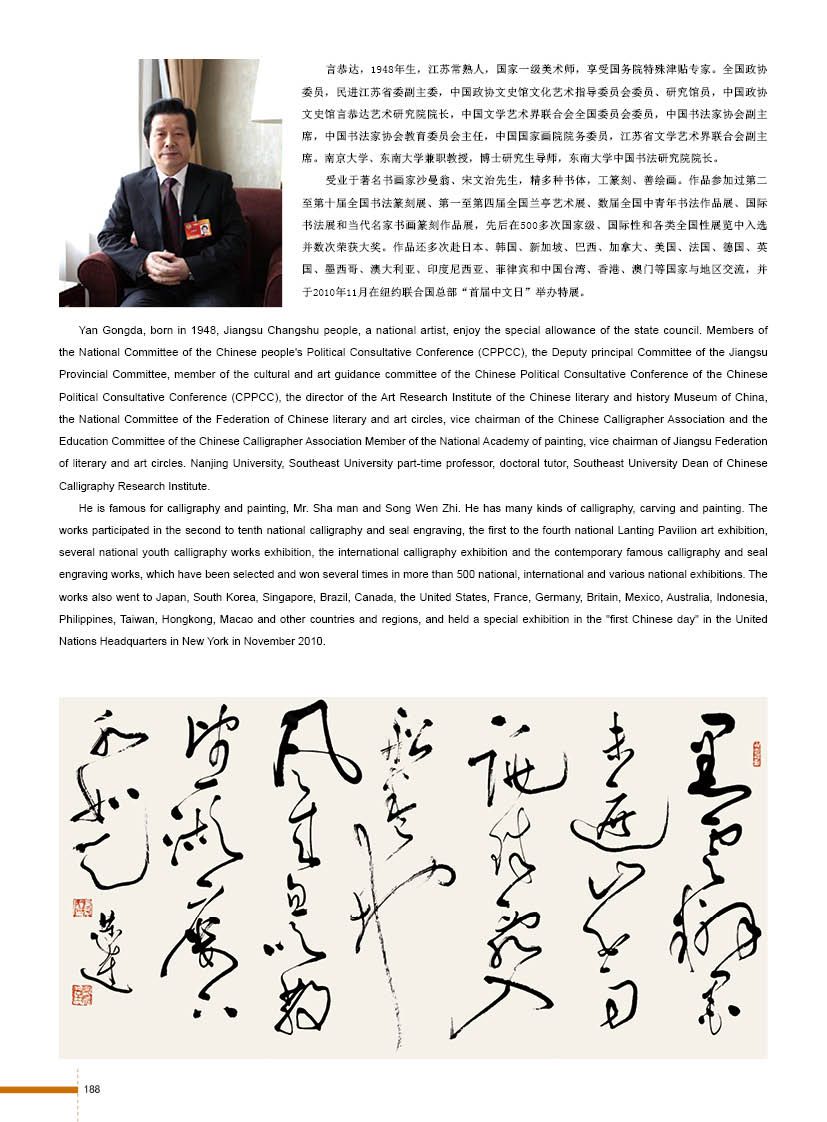 言恭达，1948年生，江苏常熟人，国家一级美术师，享受国务院特殊津贴专家。全国政协
委员，民进江苏省委副主委，中国政协文史馆文化艺术指导委员会委员、研究馆员，中国政协
文史馆言恭达艺术研究院院长，中国文学艺术界联合会全国委员会委员，中国书法家协会副主
席，中国书法家协会教育委员会主任，中国国家画院院务委员，江苏省文学艺术界联合会副主
席。南京大学、东南大学兼职教授，博士研究生导师，东南大学中国书法研究院院长。
受业于著名书画家沙曼翁、宋文治先生，精多种书体，工篆刻、善绘画。作品参加过第二
至第十届全国书法篆刻展、第一至第四届全国兰亭艺术展、数届全国中青年书法作品展、国际
书法展和当代名家书画篆刻作品展，先后在500多次国家级、国际性和各类全国性展览中入选
并数次荣获大奖。作品还多次赴日本、韩国、新加坡、巴西、加拿大、美国、法国、德国、英
国、墨西哥、澳大利亚、印度尼西亚、菲律宾和中国台湾、香港、澳门等国家与地区交流，并
于2010年11月在纽约联合国总部“首届中文日”举办特展。
Yan Gongda, born in 1948, Jiangsu Changshu people, a national artist, enjoy the special allowance of the state council. Members of
the National Committee of the Chinese people's Political Consultative Conference (CPPCC), the Deputy principal Committee of the Jiangsu
Provincial Committee, member of the cultural and art guidance committee of the Chinese Political Consultative Conference of the Chinese
Political Consultative Conference (CPPCC), the director of the Art Research Institute of the Chinese literary and history Museum of China,
the National Committee of the Federation of Chinese literary and art circles, vice chairman of the Chinese Calligrapher Association and the
Education Committee of the Chinese Calligrapher Association Member of the National Academy of painting, vice chairman of Jiangsu Federation
of literary and art circles. Nanjing University, Southeast University part-time professor, doctoral tutor, Southeast University Dean of Chinese
Calligraphy Research Institute.
He is famous for calligraphy and painting, Mr. Sha man and Song Wen Zhi. He has many kinds of calligraphy, carving and painting. The
works participated in the second to tenth national calligraphy and seal engraving, the first to the fourth national Lanting Pavilion art exhibition,
several national youth calligraphy works exhibition, the international calligraphy exhibition and the contemporary famous calligraphy and seal
engraving works, which have been selected and won several times in more than 500 national, international and various national exhibitions. The
works also went to Japan, South Korea, Singapore, Brazil, Canada, the United States, France, Germany, Britain, Mexico, Australia, Indonesia,
Philippines, Taiwan, Hongkong, Macao and other countries and regions, and held a special exhibition in the "first Chinese day" in the United
Nations Headquarters in New York in November 2010.
黑雲翻墨
未遮山白雨
跳珠亂入
船卷地
風來忽吹散
望湖樓下
水如天
恭達
188